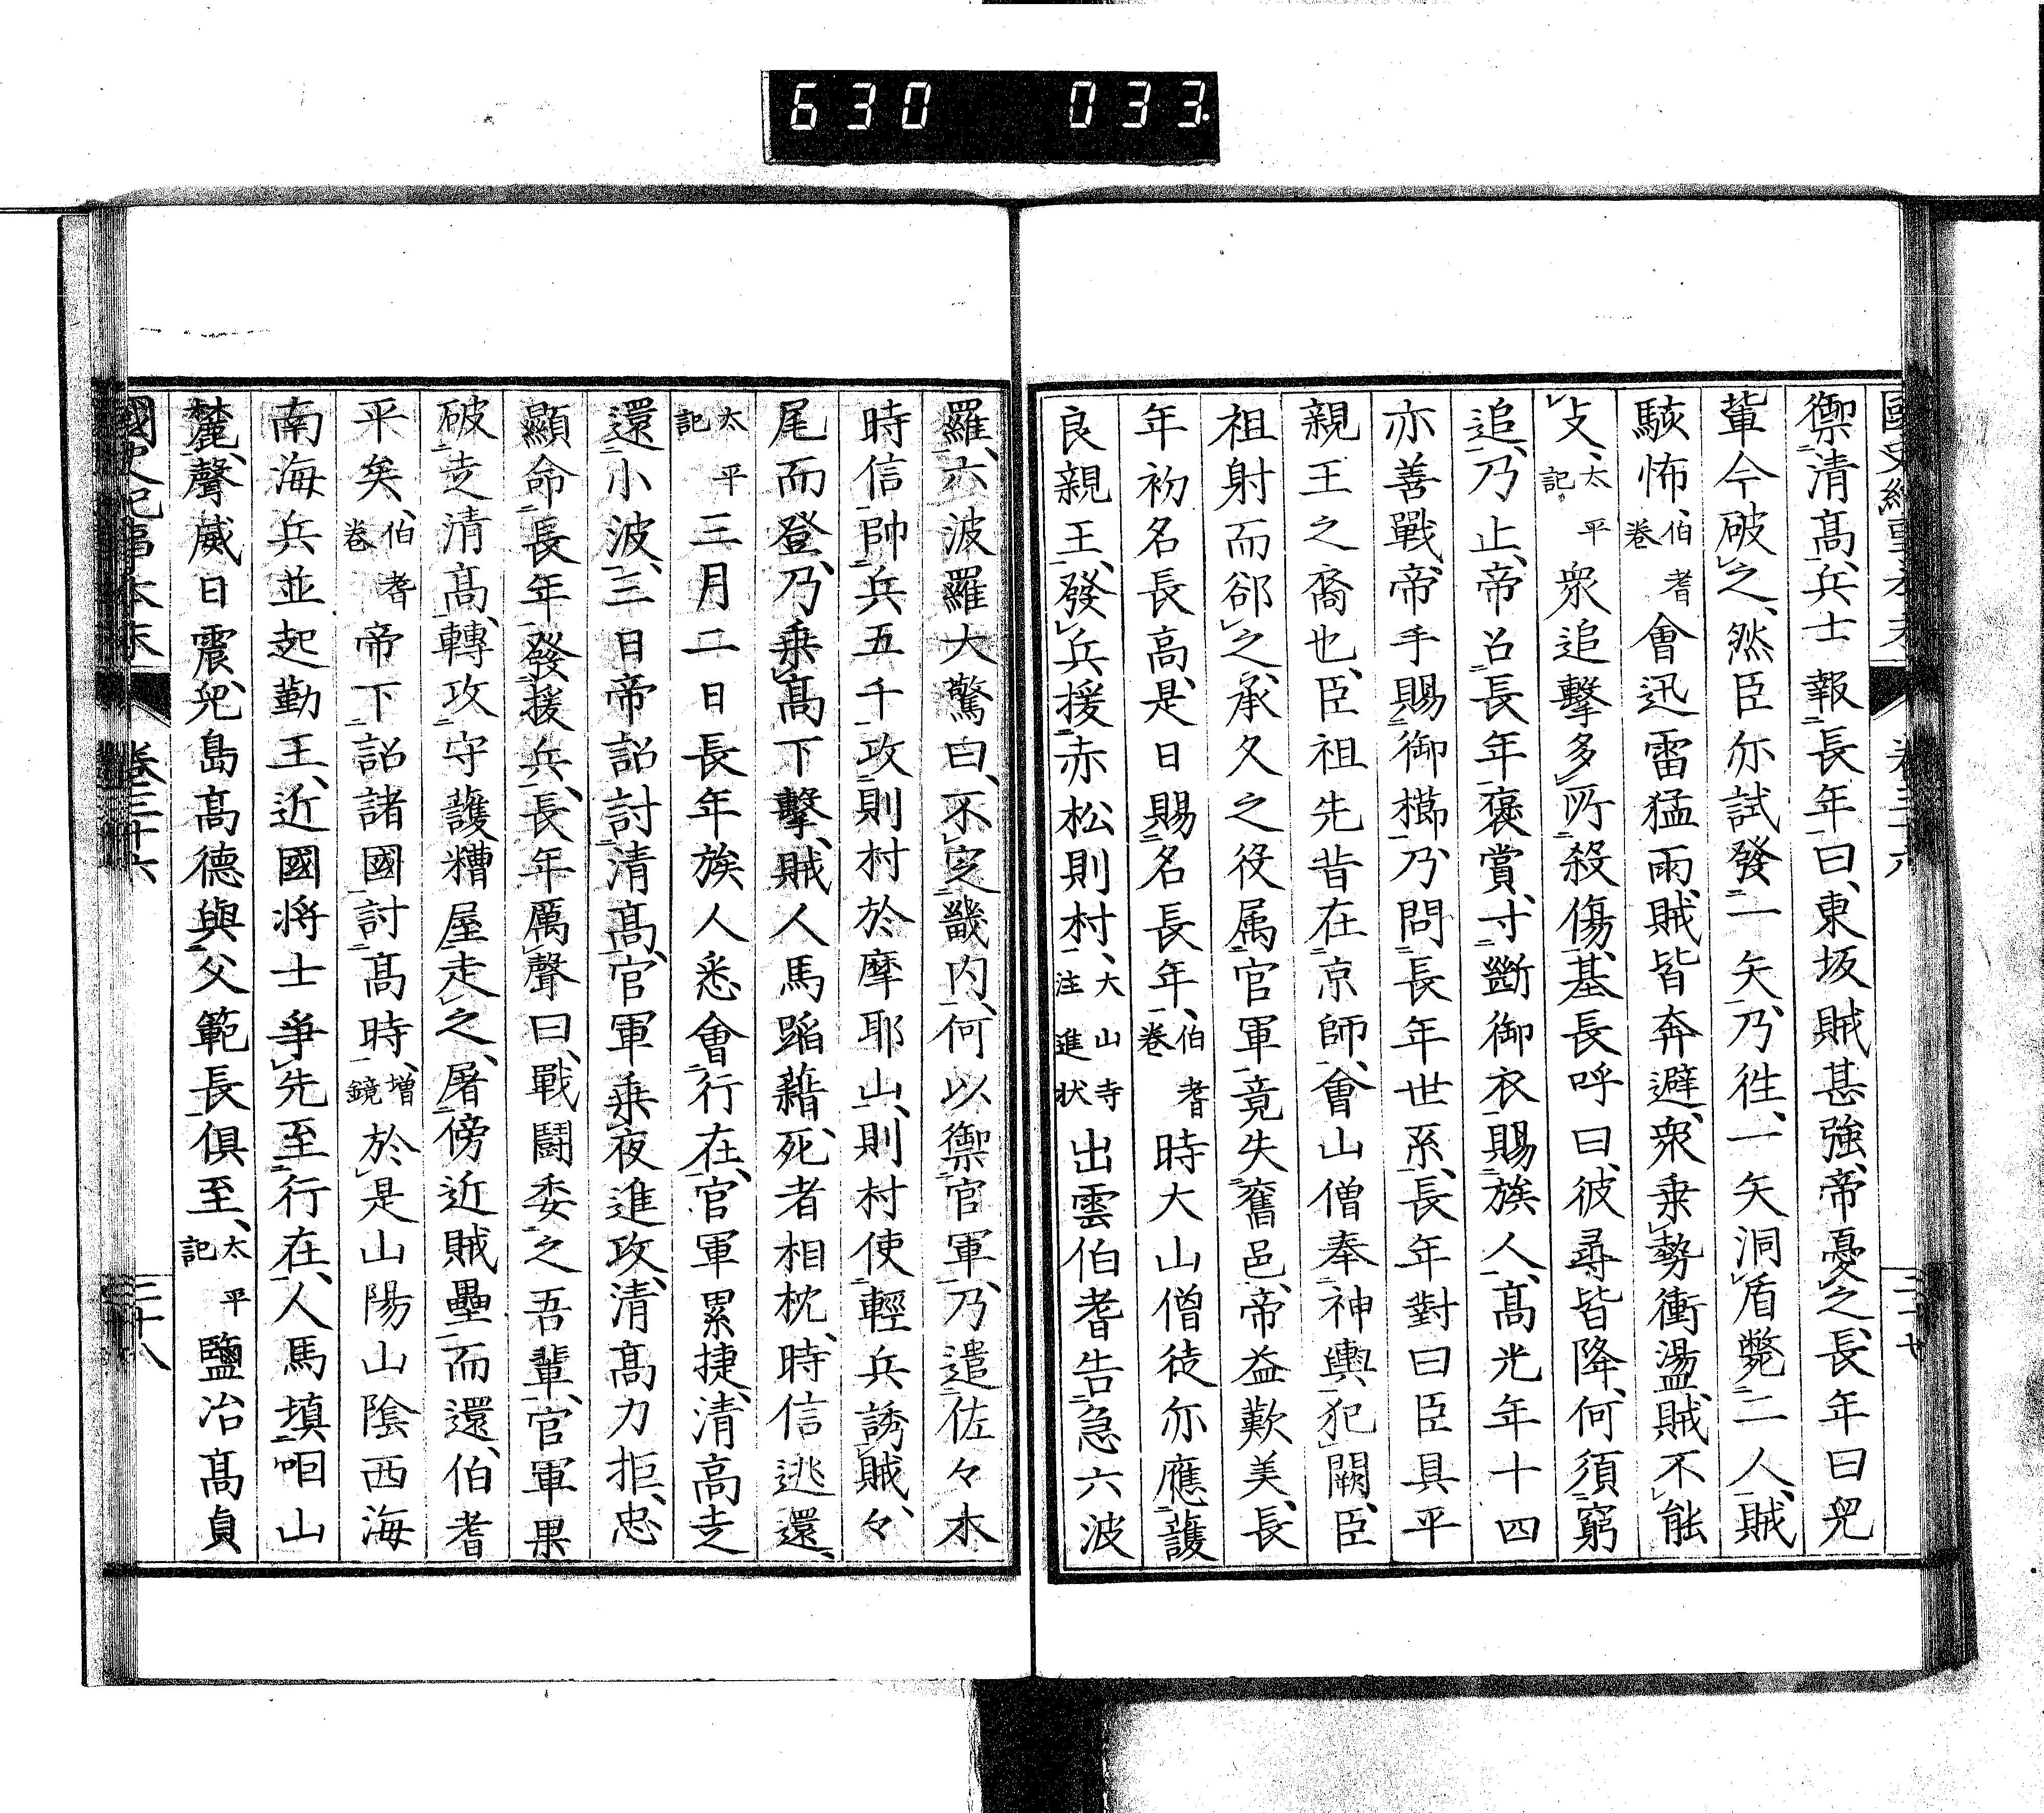 630 033
禦清髙、兵士報長年曰、東坂賊甚強、帝憂之、長年曰兇
輩今破之、然臣亦試發一矢、乃徃、一矢洞盾斃二人、賊
駭怖、伯耆卷會迅雷猛雨、賊皆奔避、衆乗勢衝盪、賊不能
支、太平記衆追擊多所殺傷、基長呼曰、彼尋皆降、何須窮
追、乃止、帝召長年褒賞、寸斷御衣賜族人、髙光年十四
亦善戰、帝手賜御櫛、乃問長年世系、長年對曰臣具平
親王之裔也、臣祖先昔在京師、會山僧奉神輿犯闕、臣
祖射而郤之、承久之役属官軍竟失舊邑、帝益歎美、長
年初名長高、是日賜名長年、伯耆卷時大山僧徒亦應護
良親王、發兵援赤松則村、大山寺注進状出雲伯耆告急六波
羅、六波羅大驚曰、不定畿内、何以禦官軍、乃遣佐々木
時信帥兵五千攻則村於摩耶山、則村使輕兵誘賊、々
尾而登、乃乗髙下擊、賊人馬蹈藉、死者相枕、時信逃還、
太平記三月二日長年族人悉會行在、官軍累捷、清高走
還小波、三日帝詔討清髙、官軍乗夜進攻、清髙力拒、忠
顯命長年發援兵、長年厲聲曰、戰鬪委之吾輩、官軍果
破走清髙、轉攻守護糟屋走之、屠傍近賊壘而還、伯耆
平矣、伯耆卷帝下詔諸國討髙時、増鏡於是山陽山陰西海
南海兵並起勤王、近國将士爭先至行在、人馬填咽山
麓、聲威日震、兒島高德與父範長俱至、太平記鹽冶髙貞
國史紀事本末 卷三十六 二十八